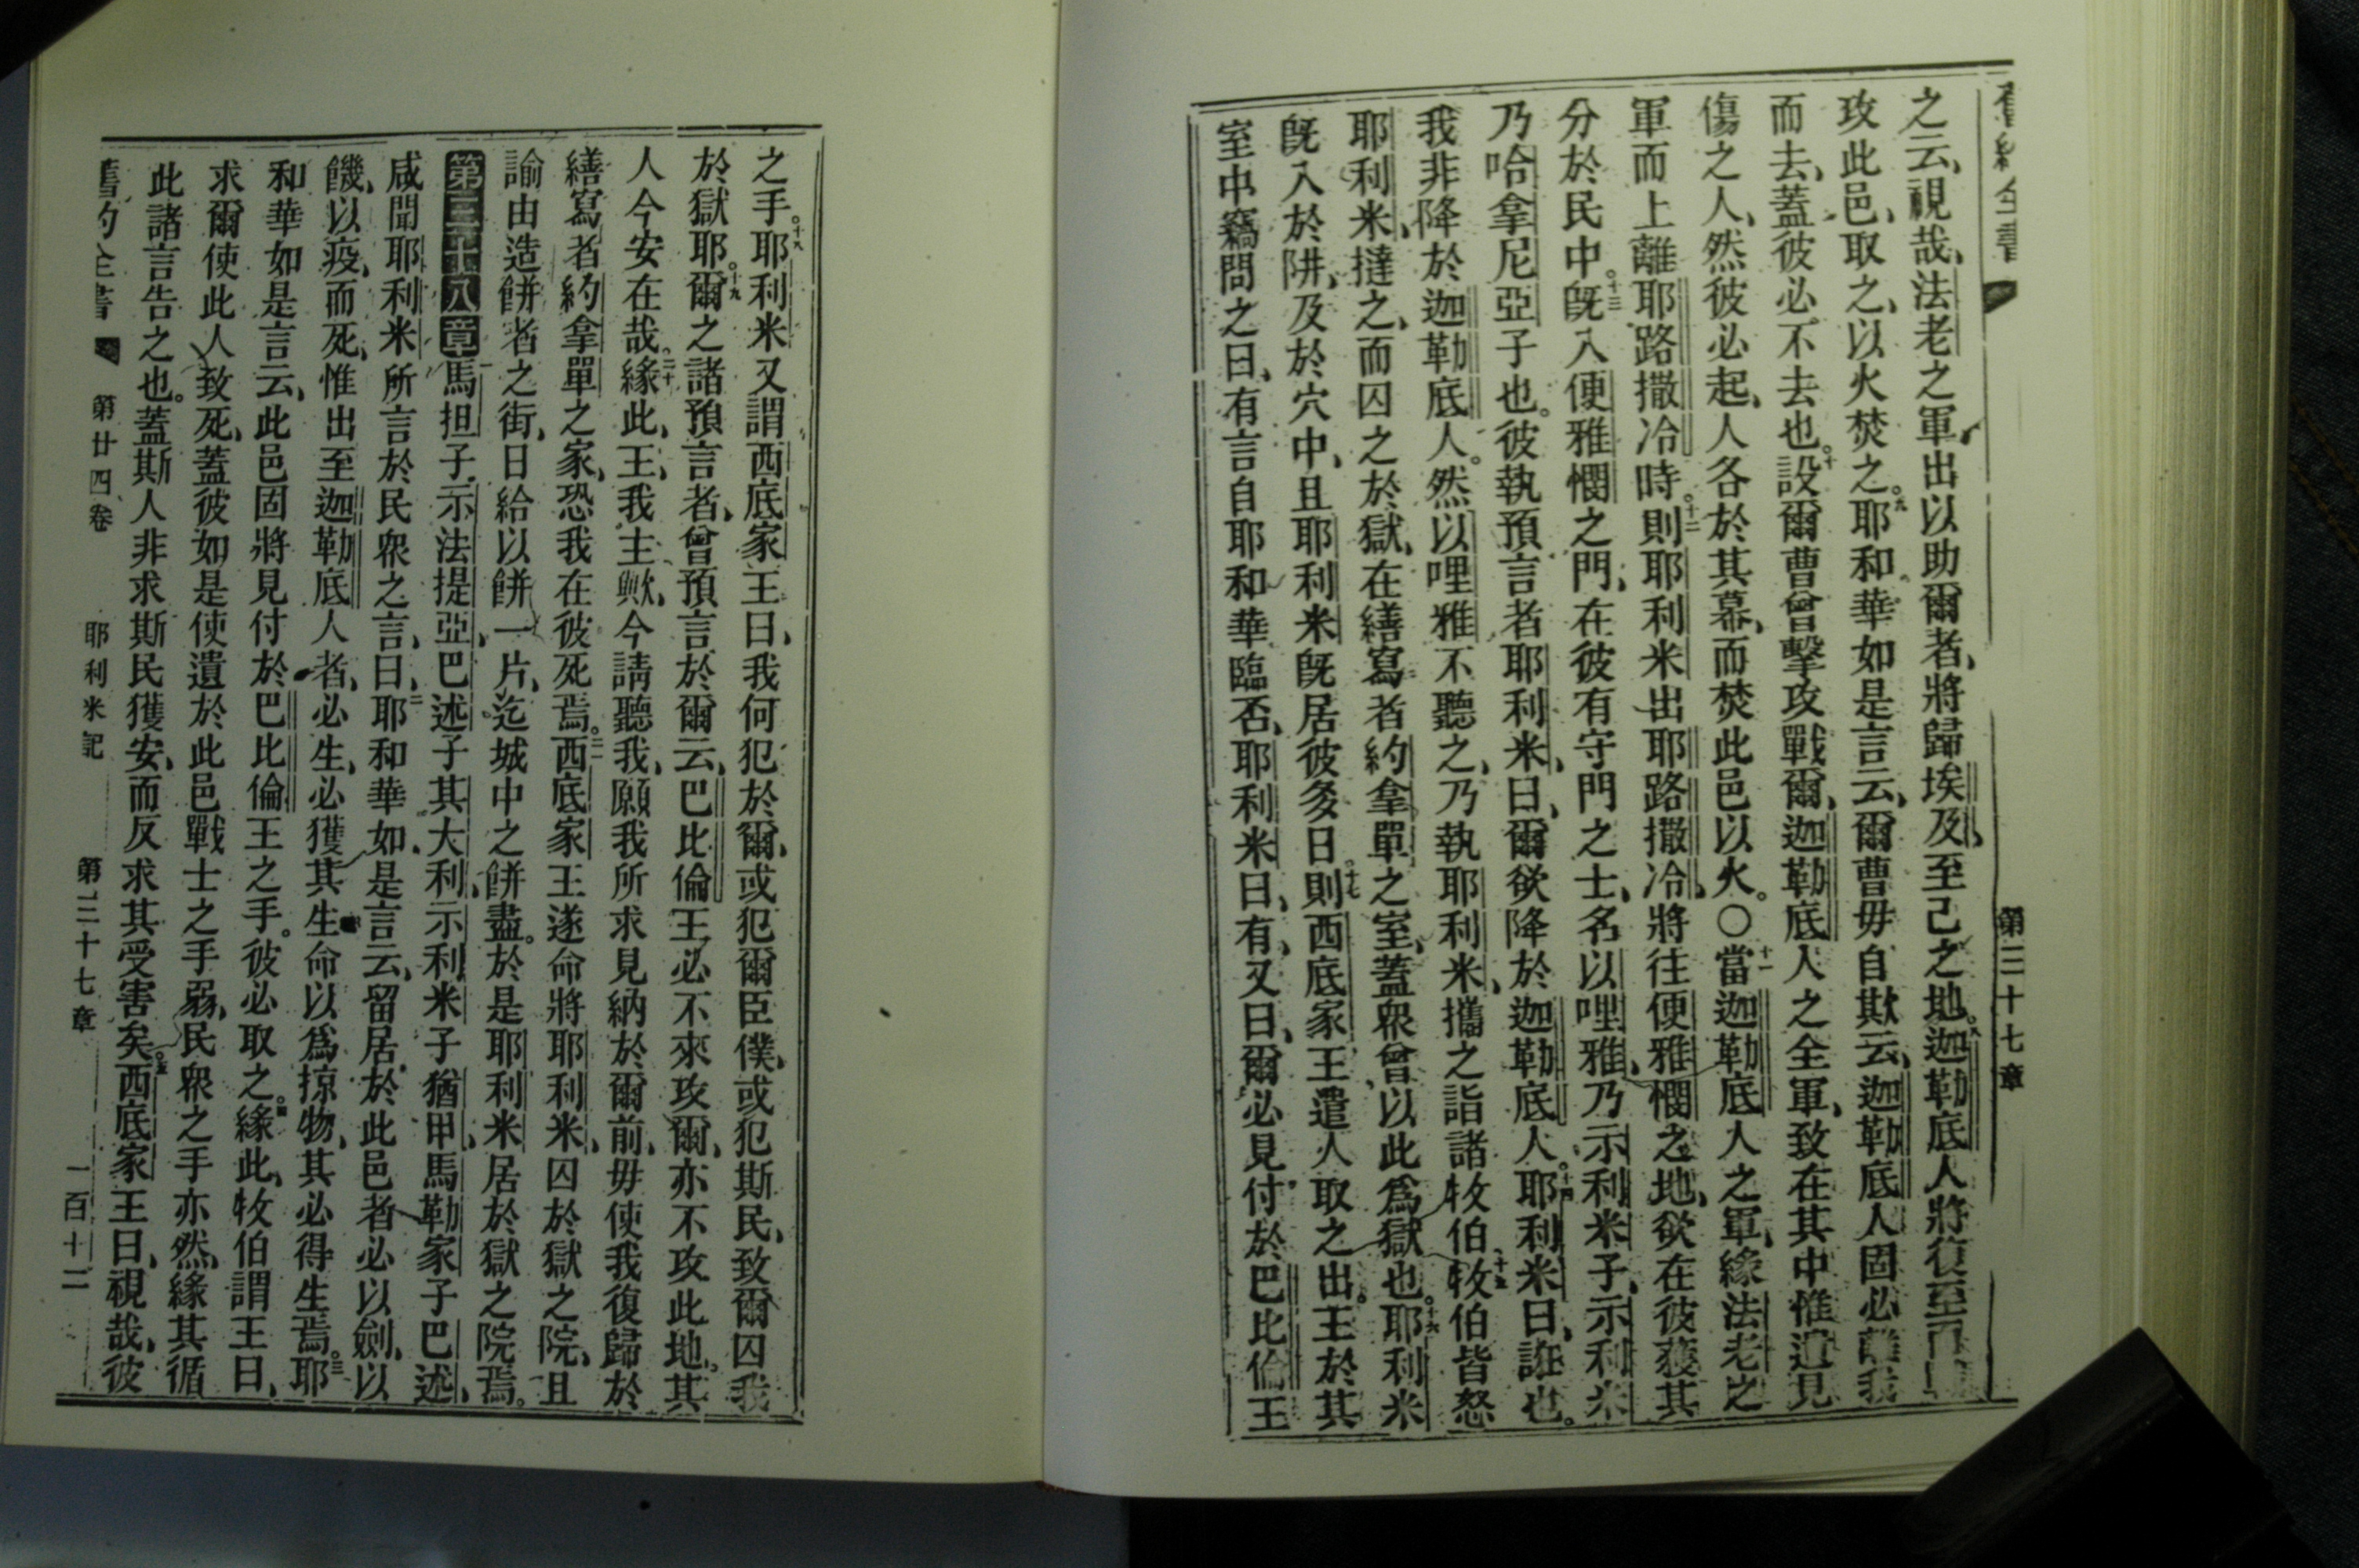 舊約全書 第三十七章
之云、視哉、法老之軍出以助爾者、將歸埃及、至己之地。八迦勒底人將復至而
攻此邑、取之、以火焚之。九耶和華如是言云、爾曹毋自欺云、迦勒底人固必離我
而去、蓋彼必不去也。十設爾曹曾擊攻戰爾、迦勒底人之全軍、致在其中惟遺見
傷之人、然彼必起、人各於其幕、而焚此邑以火。〇十一當迦勒底人之軍、緣法老之
軍而上離耶路撒冷時。十二則耶利米出耶路撒冷、將往便雅憫之地、欲在彼獲其
分於民中。十三旣入便雅憫之門、在彼有守門之士、名以哩雅、乃示利米子、示利米
乃哈拿尼亞子也。彼執預言者耶利米、曰、爾欲降於迦勒底人。十四耶利米曰、誑也。
我非降於迦勒底人。然以哩雅不聽之、乃執耶利米、攜之詣諸牧伯。十五牧伯皆怒
耶利米、撻之、而囚之於獄、在繕寫者約拿單之室、蓋衆曾以此爲獄也。十六耶利米
旣入於阱、及於穴中、且耶利米旣居彼多日。十七則西底家王遣人取之出。王於其
室中竊問之曰、有言自耶和華臨否、耶利米曰、有、又曰、爾必見付於巴比倫王
之手。十八耶利米又謂西底家王曰、我何犯於爾、或犯爾臣僕、或犯斯民、致爾囚我
於獄耶。十九爾之諸預言者、曾預言於爾云、巴比倫王必不來攻爾、亦不攻此地。其
人今安在哉。二十緣此、王、我主歟、今請聽我、願我所求見納於爾前、毋使我復歸於
繕寫者約拿單之家、恐我在彼死焉。二一西底家王遂命將耶利米、囚於獄之院、且
諭由造餅者之街、日給以餅一片、迄城中之餅盡。於是耶利米居於獄之院焉。
第三十八章馬担子示法提亞、巴述子其大利、示利米子猶甲、馬勒家子巴述、
咸聞耶利米所言於民衆之言、曰、二耶和華如是言云、留居於此邑者必以劍、以
饑、以疫、而死、惟出至迦勒底人者、必生、必獲其生命以爲掠物、其必得生焉。三耶
和華如是言云、此邑固將見付於巴比倫王之手。彼必取之。四緣此、牧伯謂王曰、
求爾使此人致死、蓋彼如是使遺於此邑戰士之手弱、民衆之手亦然、緣其循
此諸言告之也。蓋斯人非求斯民獲安、而反求其受害矣。五西底家王曰、視哉、彼
舊約全書 第廿四卷 耶利米記 第三十七章 一百十三